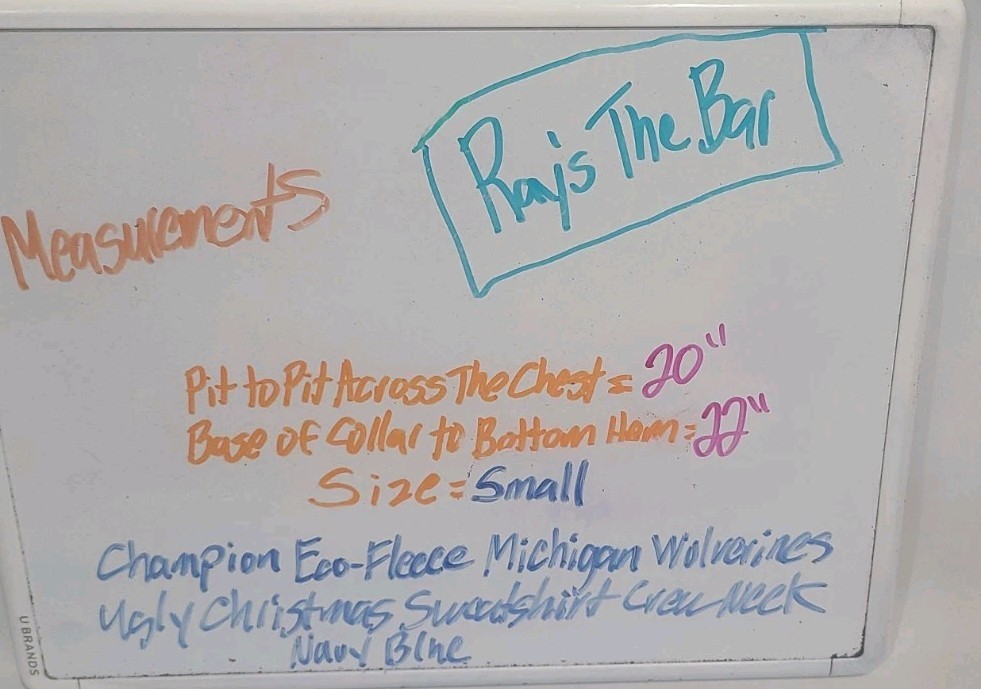 Ray's The Bar
Measurements
Pit to Pit Across The Chest = 20"
Base of Collar to Bottom Hem = 22"
Size = Small
Champion Eco-Fleece Michigan Wolverines
Ugly Christmas Sweatshirt Crew Neck
Navy Blue
U BRANDS